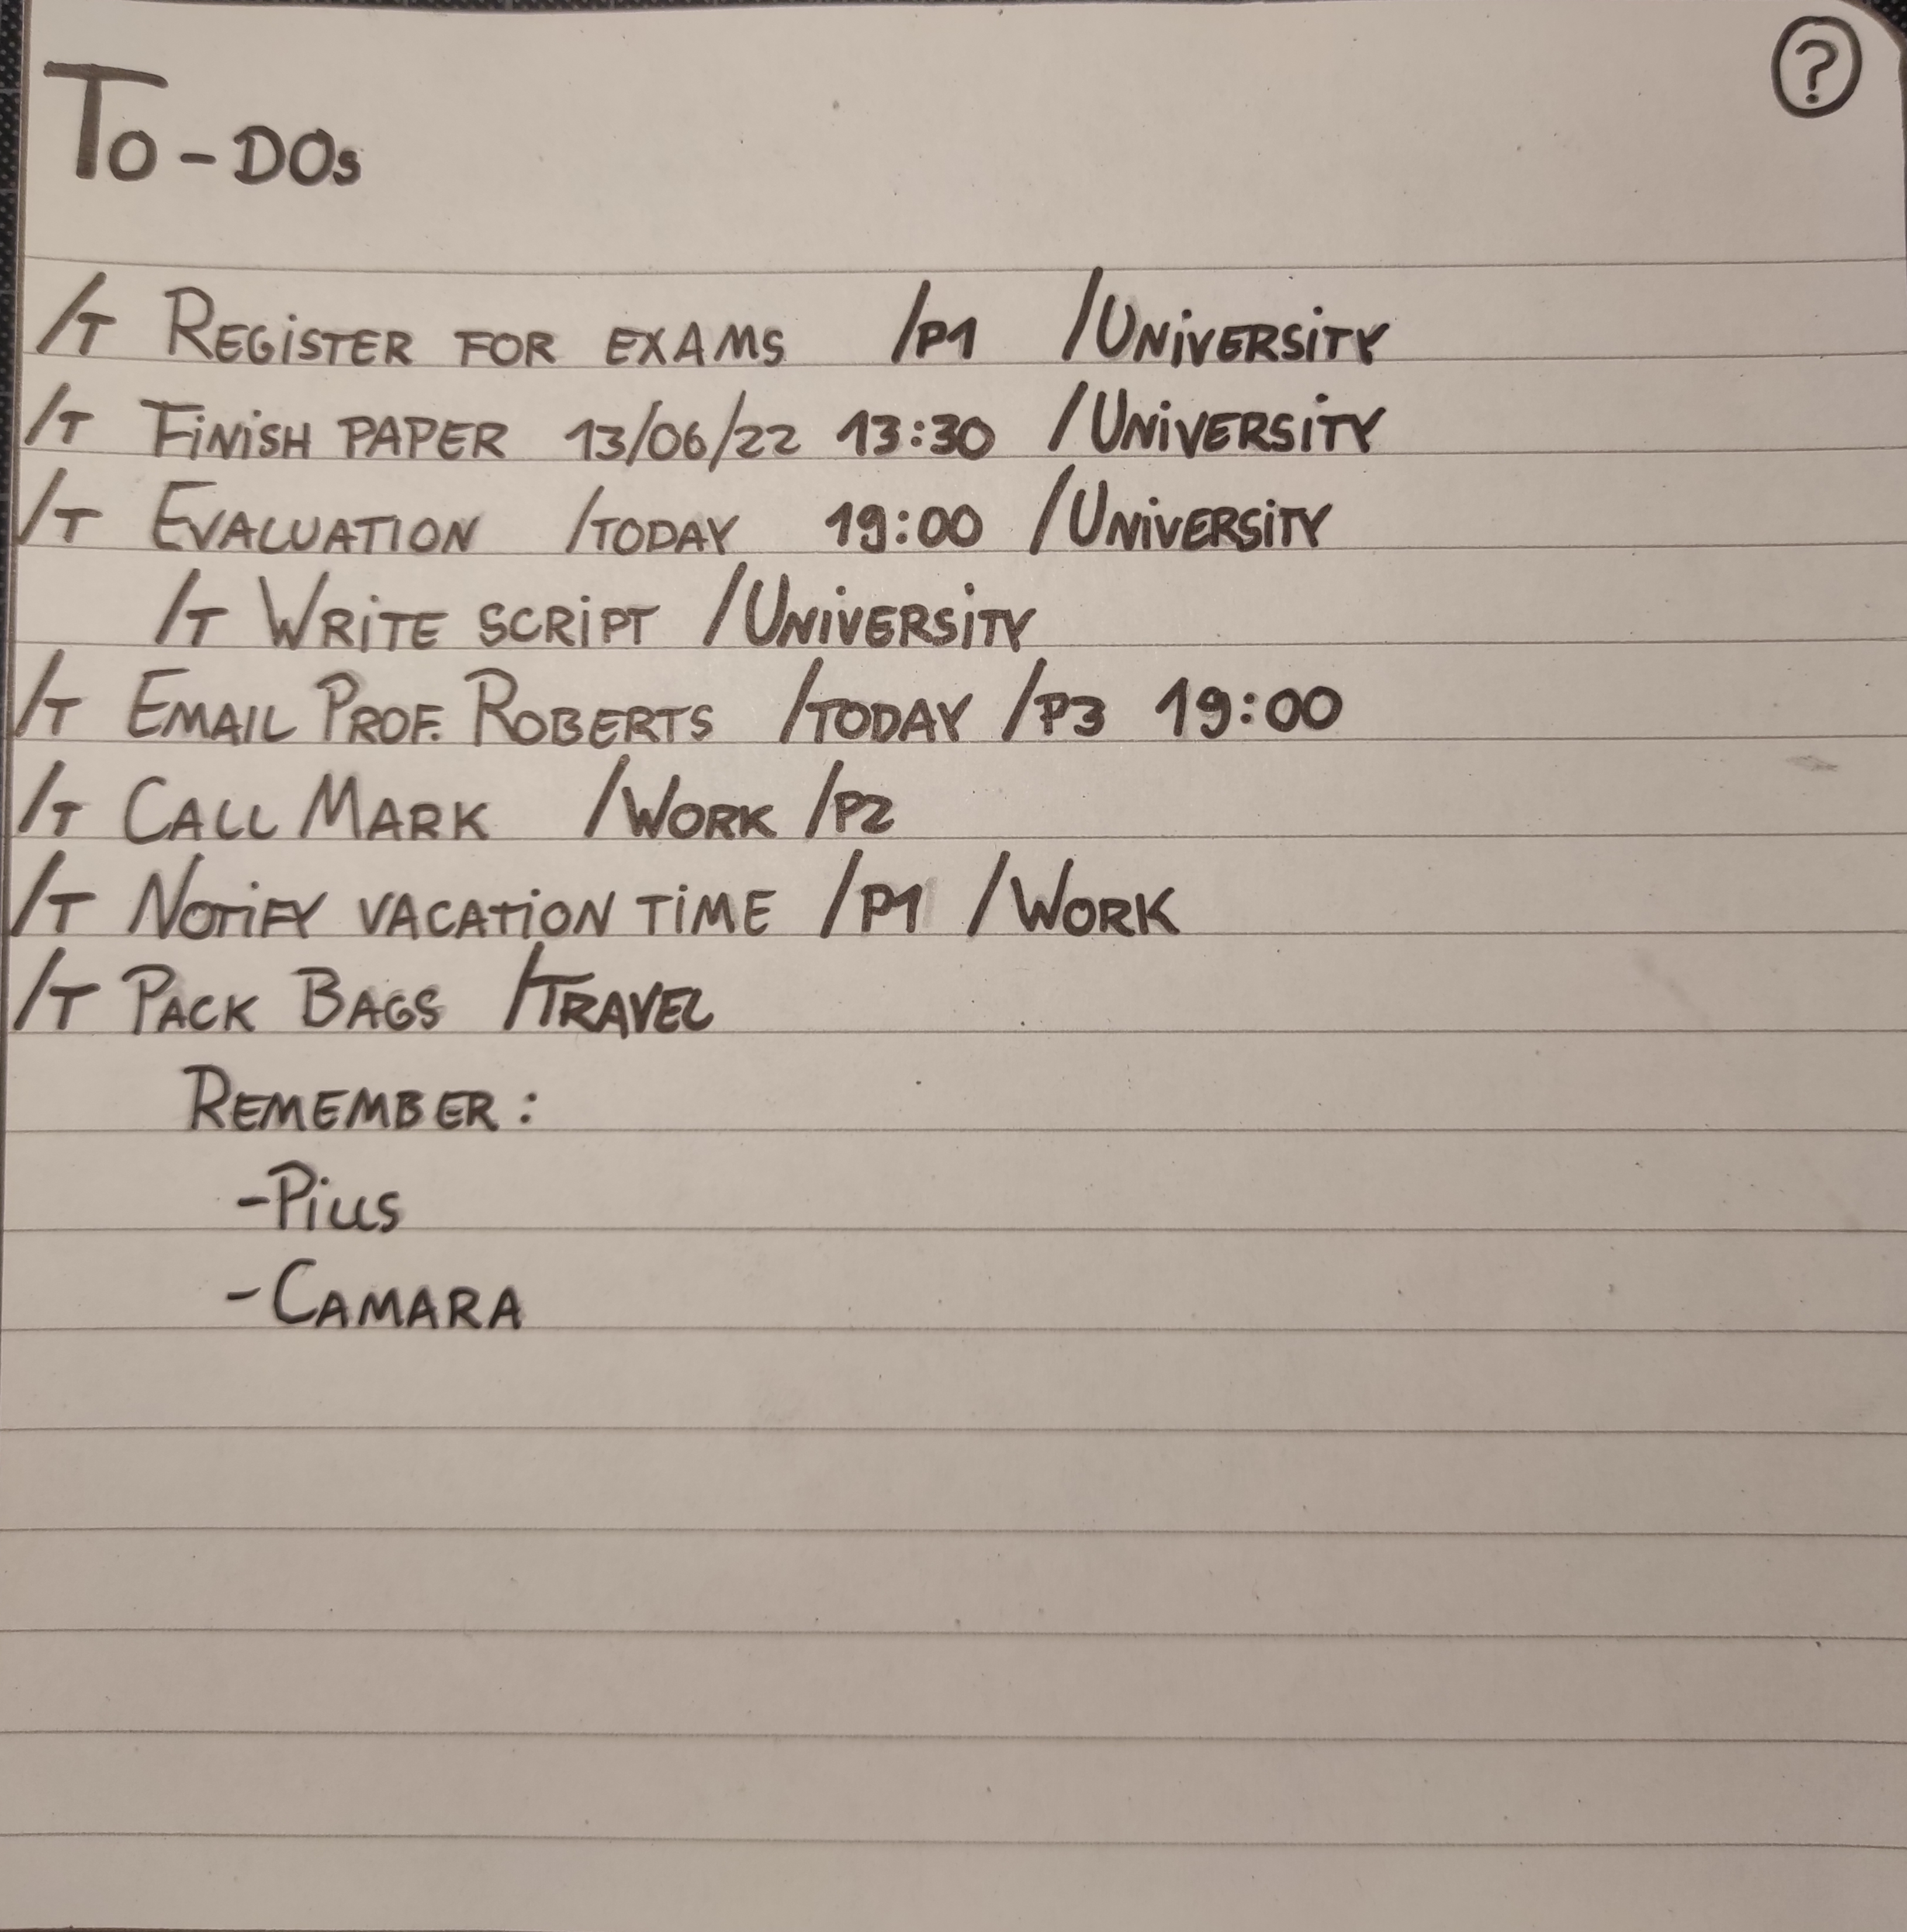 ?
To-DOs
/T Register for exams /P1 /University
/T Finish paper 13/06/22 13:30 /University
/T Evaluation /today 19:00 /University
/T Write script /University
/T Email Prof. Roberts /today /P3 19:00
/T Call Mark /Work /P2
/T Notify vacation time /P1 /Work
/T Pack Bags /Travel
Remember:
-Pills
-Camara